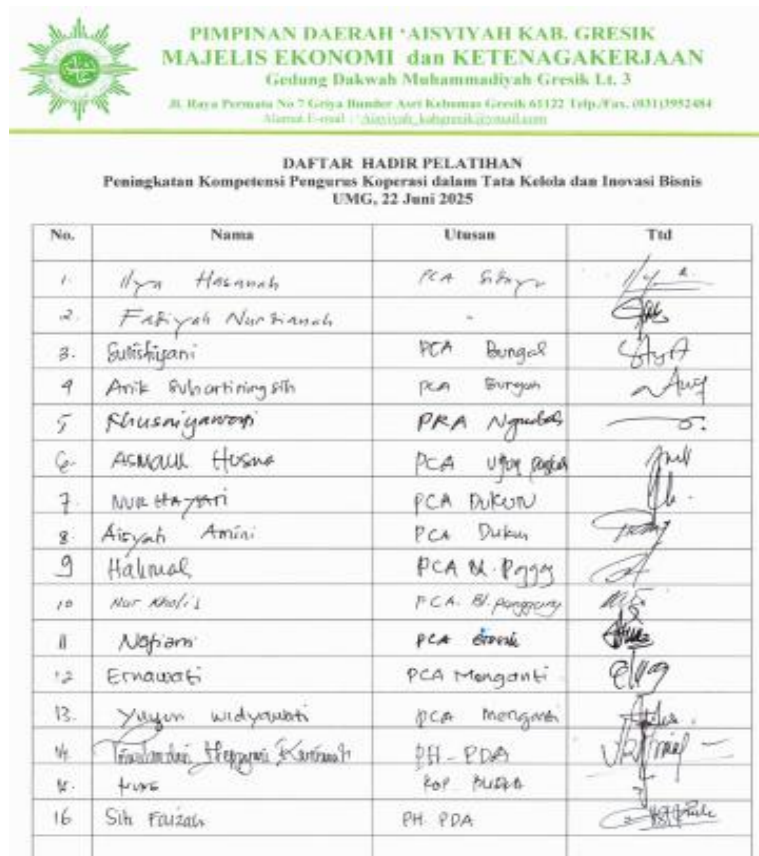 PIMPINAN DAERAH 'AISYIYAH KAB. GRESIK
MAJELIS EKONOMI dan KETENAGAKERJAAN
Gedung Dakwah Muhammadiyah Gresik Lt. 3
Jl. Raya Permata No 7 Griya Bunder Asri Kebomas Gresik 61122 Telp./Fax. (031)3952484
Alamat E-mail :
DAFTAR HADIR PELATIHAN
Peningkatan Kompetensi Pengurus Koperasi dalam Tata Kelola dan Inovasi Bisnis
UMG, 22 Juni 2025
No. Nama Utusan Ttd
1. Ilya Hasanah PCA
2. Nur
3. Sulistiyani PCA Bungah
4 Anik Suhartiningsih PCA Bungah
5 Khusniyawati PRA
6. ASMAUL Husna PCA Ujung
7. NUR HAYATI PCA DUKUN
8. Aisyah Amini PCA Dukun
9 PCA
10 Nur Kholis PCA. Bl. panggang
11 Nofiani PCA
12 Ernawati PCA Menganti
13. Yuyun widyawati PCA menganti
14. PH-PDA
15. Kop
16 Siti Faizah PH PDA